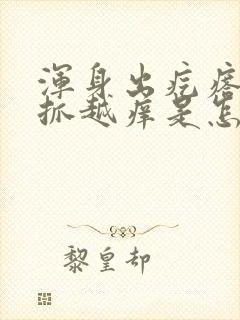 浑身出疙瘩
抓越痒是怎
黎皇却